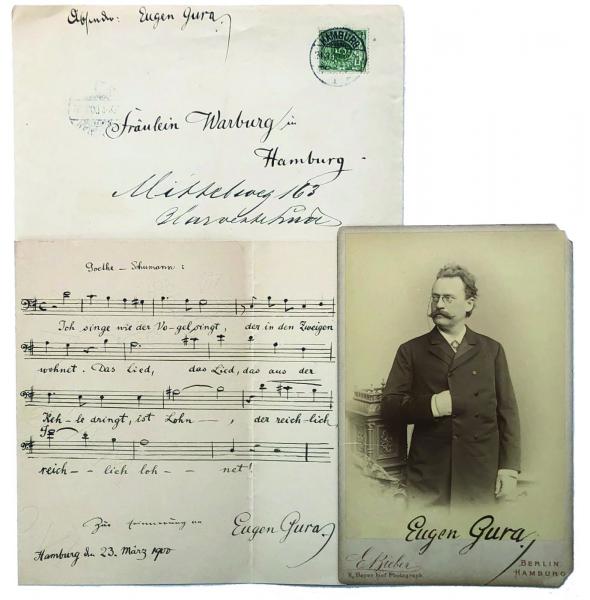 Absender: Eugen Gura.
HAMBURG
Fräulein Warburg in
Hamburg.
Mittelweg 163
Harvestehude
Goethe – Schumann:
Ich singe wie der Vo-gel singt, der in den Zweigen
wohnet. Das Lied, das Lied, das aus der
Keh-le dringt, ist Lohn–, der reich-lich,
reich-- lich loh-- net!
Zur Erinnerung an Eugen Gura.
Hamburg den 23. März 1900
Eugen Gura.
E. Bieber
K. Bayer. Hof Photograph
BERLIN
HAMBURG